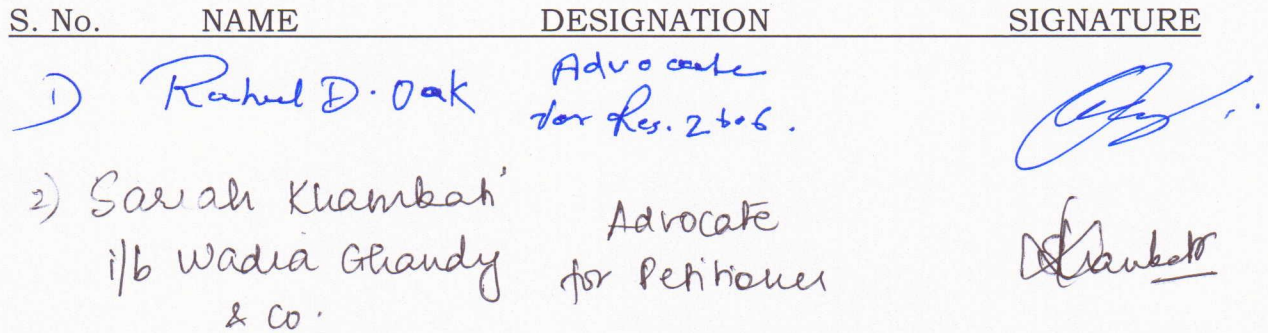 S. No. NAME DESIGNATION SIGNATURE
1) Rahul D. Oak Advocate
for Res. 2 to 6.
2) Sariah Khambati Advocate
i/b Wadia Ghandy for Petitioner
& Co.